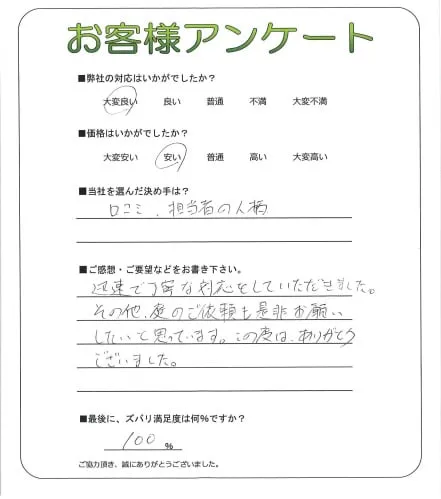 お客様アンケート
■弊社の対応はいかがでしたか?
大変良い 良い 普通 不満 大変不満
■価格はいかがでしたか?
大変安い 安い 普通 高い 大変高い
■当社を選んだ決め手は?
口コミ、担当者の人柄
■ご感想・ご要望などをお書き下さい。
迅速で丁寧な対応をしていただきました。
その他、庭のご依頼も是非お願い
したいと思っています。この度は、ありがとう
ございました。
■最後に、ズバリ満足度は何%ですか?
100 %
ご協力頂き、誠にありがとうございました。